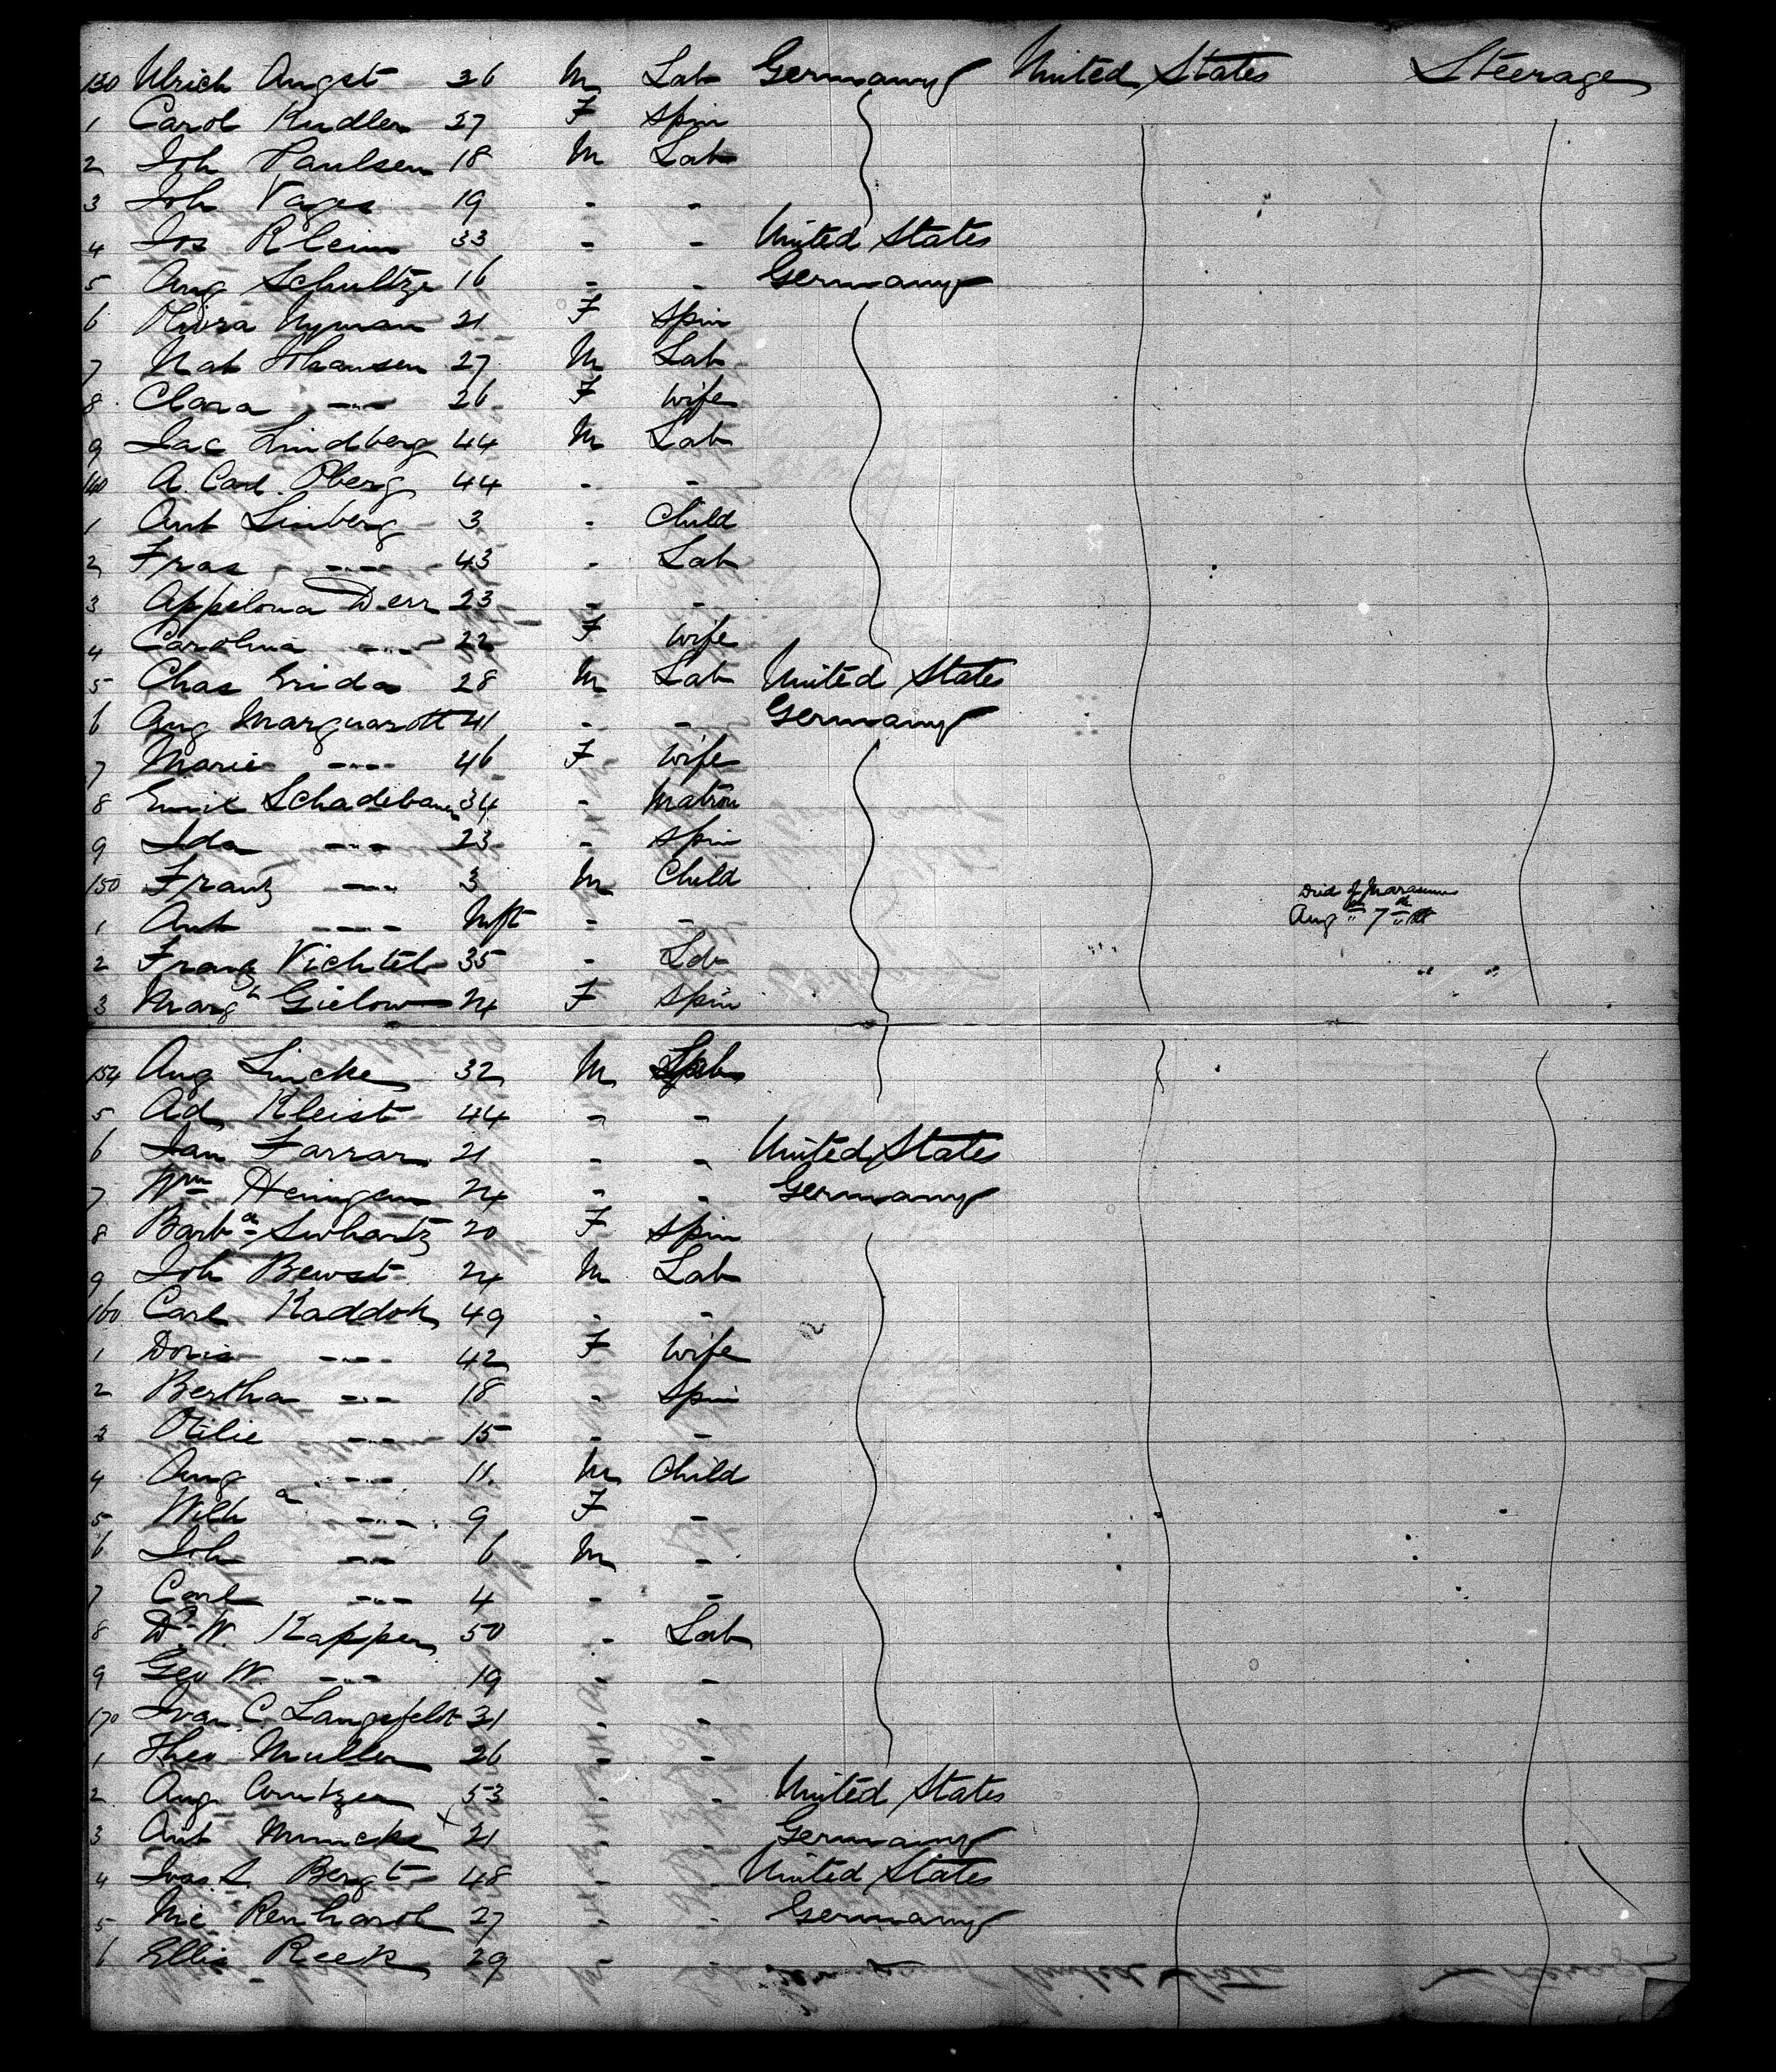 130 Ulrich Angst 36 M Lab Germany United States Steerage
1 Carol Kudler 27 F Spin
2 Joh Paulsen 18 M Lab
3 Joh Vages 19 - -
4 Jos Klein 33 - - United States
5 Aug Schultze 16 - - Germany
6 Nyman 21 F Spin
7 Nat Johansen 27 M Lab
8 Clara -"- 26 F Wife
9 Jac Lindberg 44 M Lab
140 A. Carl Oberg 44 - -
1 Ant Linberg 3 - Child
2 Fras -"- 43 - Lab
3 Appelona Derr 23 - -
4 Carolina -"- 22 F Wife
5 Chas 28 M Lab United States
6 Aug Marquardt 41 - - Germany
7 Marie -"- 46 F Wife
8 Emil Schadebauer 34 - Matron
9 Ida -"- 23 - Spin
150 Frantz -"- 3 M Child
Died of Marasmus
1 Ant -"- Inft - -
Aug 7th
2 Franz Vichtel 35 - Lab
3 Margh Gielow 24 F Spin
154 Aug Lincke 32 M Lab
5 Ad Kleist 44 - -
6 Jan Farrar 21 - - United States
7 Wm Heningen 24 - - Germany
8 Barba Swhartz 20 F Spin
9 Joh Bewst 24 M Lab
160 Carl Kaddok 49 - -
1 Doris -"- 42 F Wife
2 Bertha -"- 18 - Spin
3 Otilie -"- 15 - -
4 Aug -"- 11 M Child
5 Wilha -"- 9 F -
6 Joh -"- 6 M -
7 Carl -"- 4 - -
8 D. W. Kapper 50 - Lab
9 Geo W. -"- 19 - -
170 Ivan C. Langefeldt 31 - -
1 Theo Muller 26 - -
2 Aug 53 - - United States
3 Ant x 21 - - Germany
4 Bergt 48 - - United States
5 Nic Renhardt 27 - - Germany
6 Ellis Reek 29 -